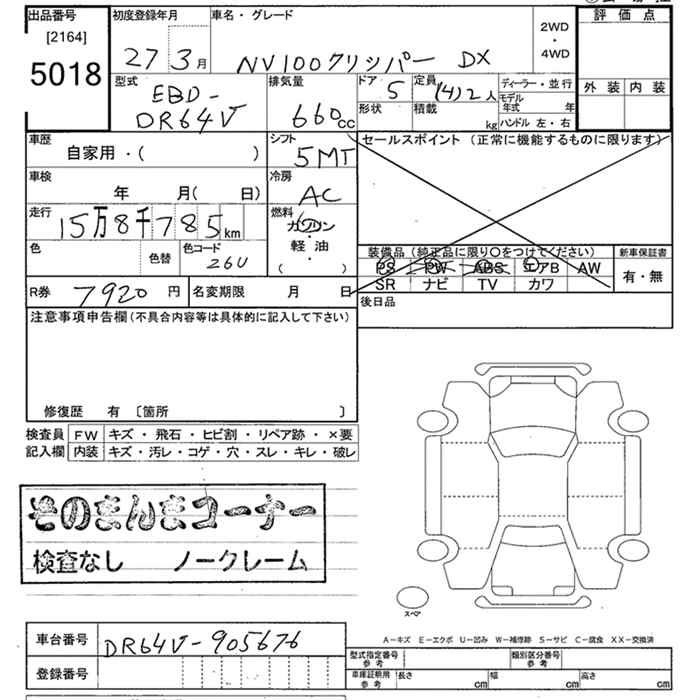 出品番号
[2164]
5018
初度登録年月
27 3月
車名・グレード
NV100クリッパー DX
2WD
・
4WD
評価点
外装 内装
型式
EBD-
DR64V
排気量
660cc
ドア 5
定員 (4)2人
形状
積載 kg
ディーラー・並行
モデル年式 年
ハンドル 左・右
車歴
自家用・( )
シフト
5MT
セールスポイント (正常に機能するものに限ります)
車検
年 月( 日)
冷房
AC
走行
15万8千785km
燃料
ガソリン
・
軽油
( )
色
色替
色コード
26U
装備品(純正品に限り○をつけてください)
PS PW ABS エアB AW
SR ナビ TV カワ
新車保証書
有・無
R券 7920円
名変期限 月 日
後日品
注意事項申告欄(不具合内容等は具体的に記入して下さい)
修復歴 有 〔箇所 〕
検査員記入欄
FW キズ・飛石・ヒビ割・リペア跡・×要
内装 キズ・汚レ・コゲ・穴・スレ・キレ・破レ
そのまんまコーナー
検査なし ノークレーム
スペア
A-キズ E-エクボ U-凹み W-補修跡 S-サビ C-腐食 XX-交換済
車台番号 DR64V-905676
登録番号
型式指定番号 参考
類別区分番号 参考
車庫証明用 参考
長さ cm 幅 cm 高さ cm